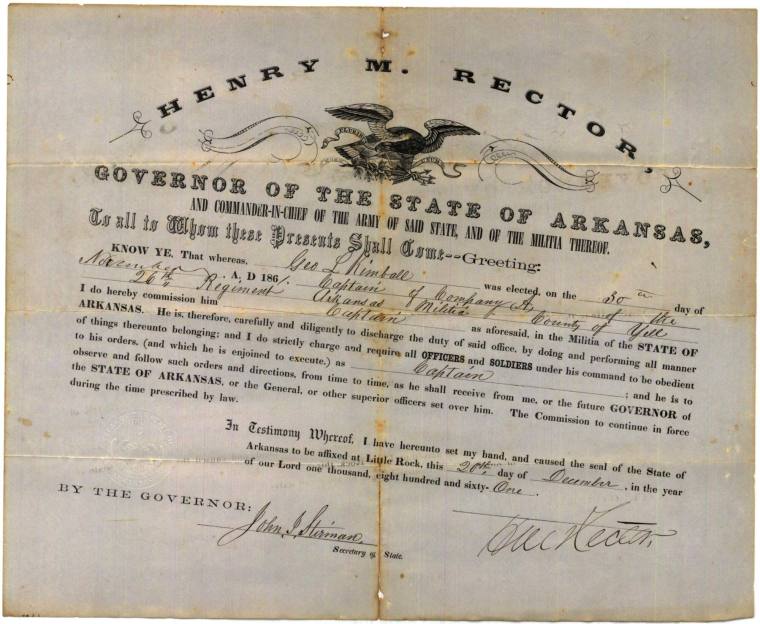 HENRY M. RECTOR,
E PLURIBUS UNUM
GOVERNOR OF THE STATE OF ARKANSAS,
AND COMMANDER-IN-CHIEF OF THE ARMY OF SAID STATE, AND OF THE MILITIA THEREOF.
To all to Whom these Presents Shall Come--Greeting:
KNOW YE, That whereas, Geo L Kimball was elected, on the 30th day of
November, A, D 1861. Captain of Company A, of the
26th Regiment Arkansas Militia County of Yell
I do hereby commission him Captain as aforesaid, in the Militia of the STATE OF
ARKANSAS. He is, therefore, carefully and diligently to discharge the duty of said office, by doing and performing all manner
of things thereunto belonging; and I do strictly charge and require all OFFICERS and SOLDIERS under his command to be obedient
to his orders, (and which he is enjoined to execute,) as Captain ; and he is to
observe and follow such orders and directions, from time to time, as he shall receive from me, or the future GOVERNOR of
the STATE OF ARKANSAS, or the General, or other superior officers set over him. The Commission to continue in force
during the time prescribed by law.
In Testimony Whereof, I have hereunto set my hand, and caused the seal of the State of
Arkansas to be affixed at Little Rock, this 20th day of December, in the year
of our Lord one thousand, eight hundred and sixty-One.
BY THE GOVERNOR:
John I. Stirman,
Secretary of State.
H M Rector